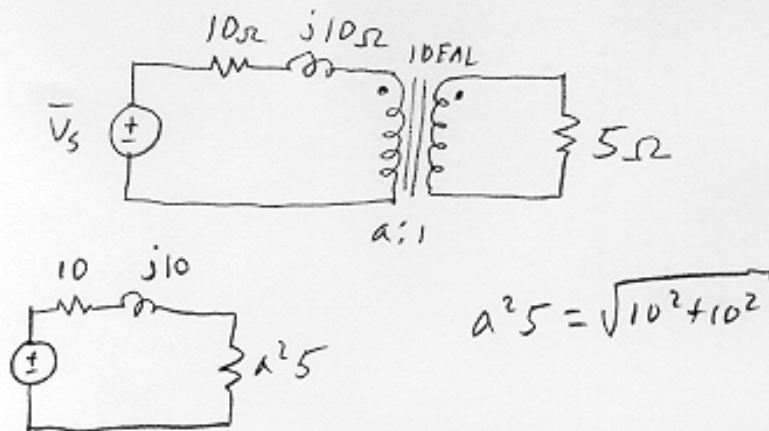 10Ω j10Ω
IDEAL
V̅s
±
5Ω
a:1
10 j10
±
a²5
a²5 = √10²+10²